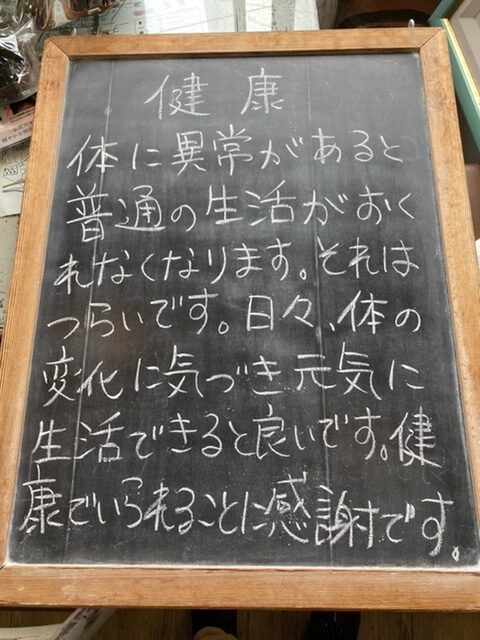 健康
体に異常があると
普通の生活がおく
れなくなります。それは
つらいです。日々、体の
変化に気づき元気に
生活できると良いです。健
康でいられることに感謝です。